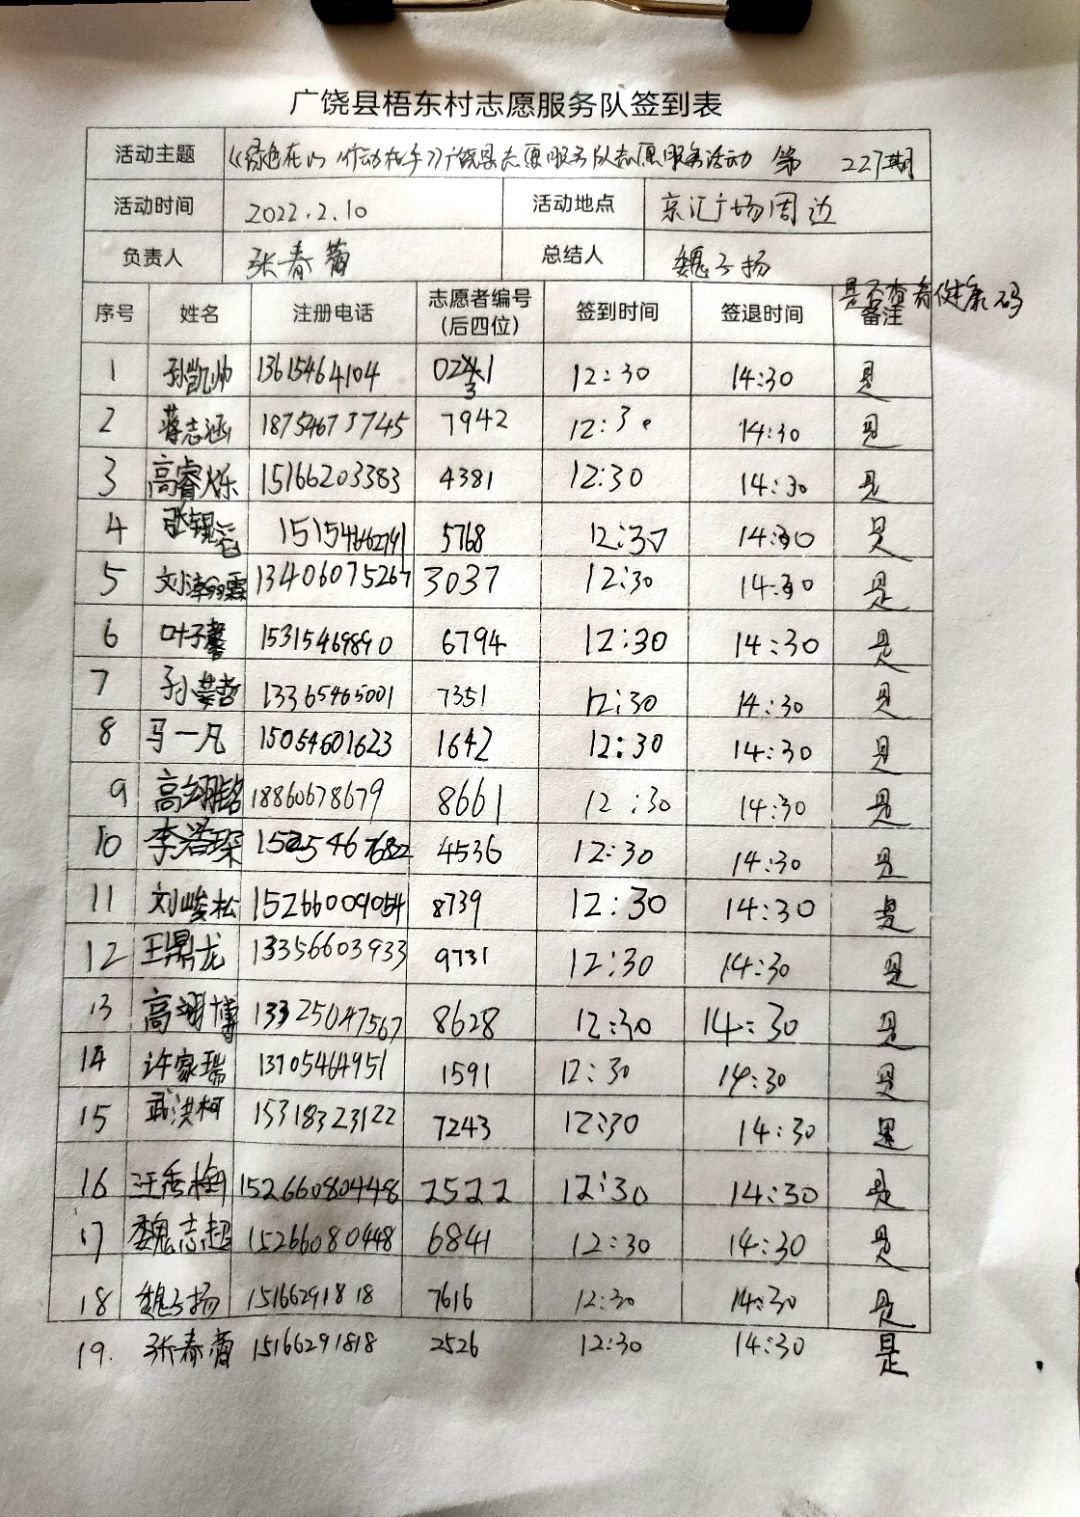 广饶县梧东村志愿服务队签到表
活动主题 《绿色在心 行动在手》广饶县志愿服务队志愿服务活动 第 227期
活动时间 2022.2.10 活动地点 京汇广场周边
负责人 张春蕾 总结人 魏子扬
是否查看健康码
序号 姓名 注册电话 志愿者编号(后四位) 签到时间 签退时间 备注
1 孙凯帅 13615464104 12:30 14:30 是
2 蒋志涵 18754673745 7942 12:30 14:30 是
3 高睿烁 15166203383 4381 12:30 14:30 是
4 5768 12:30 14:30 是
5 刘瀚霖 13406075267 3037 12:30 14:30 是
6 叶子馨 15315469890 6794 12:30 14:30 是
7 13365465001 7351 12:30 14:30 是
8 马一凡 15054601623 1642 12:30 14:30 是
9 高翊铭 18860678679 8661 12:30 14:30 是
10 李浩琛 4536 12:30 14:30 是
11 刘峻松 15266009054 8739 12:30 14:30 是
12 王鼎龙 13356603933 9731 12:30 14:30 是
13 高翊博 13325047567 8628 12:30 14:30 是
14 许家瑞 13705464951 1591 12:30 14:30 是
15 武洪柯 15318323122 7243 12:30 14:30 是
16 汪香梅 15266080448 2522 12:30 14:30 是
17 魏志超 15266080448 6841 12:30 14:30 是
18 魏子扬 15166291818 7616 12:30 14:30 是
19. 张春蕾 15166291818 2526 12:30 14:30 是